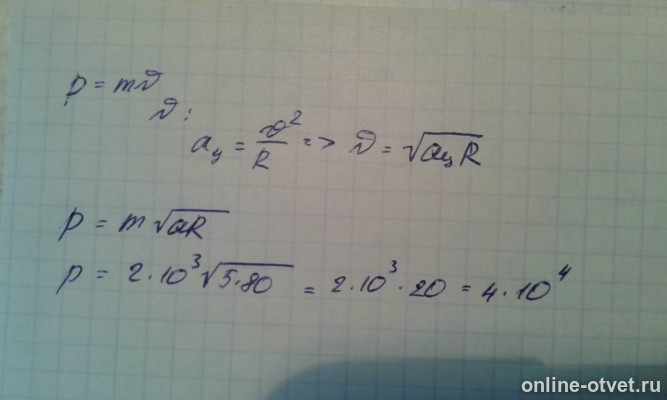 p = mv
v:
aц = v²/R => v = √aцR
p = m√aR
p = 2·10³√5·80 = 2·10³·20 = 4·10⁴
online-otvet.ru